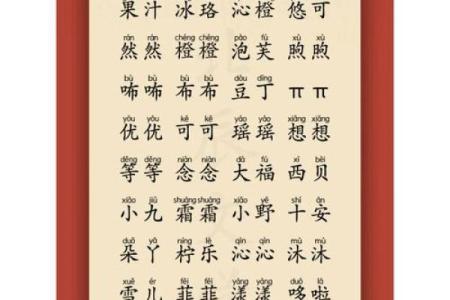 果汁 冰珞 沁橙 悠可
rán rán chéng chéng pào fú xù xù
然然 橙橙 泡芙 煦煦
bù bù bù bù dòu dīng
咘咘 布布 豆丁 ππ
yōu yōu kě kě yáo yáo xiǎng xiǎng
优优 可可 瑶瑶 想想
děng děng niàn niàn dà fú xī bèi
等等 念念 大福 西贝
xiǎo jiǔ shuāng shuāng xiǎo yě shí ān
小九 霜霜 小野 十安
duǒ yā níng lè qìn qìn mù mù
朵丫 柠乐 沁沁 沐沐
xuě ér fēi fēi yàng yàng duō la
雪儿 菲菲 漾漾 哆啦